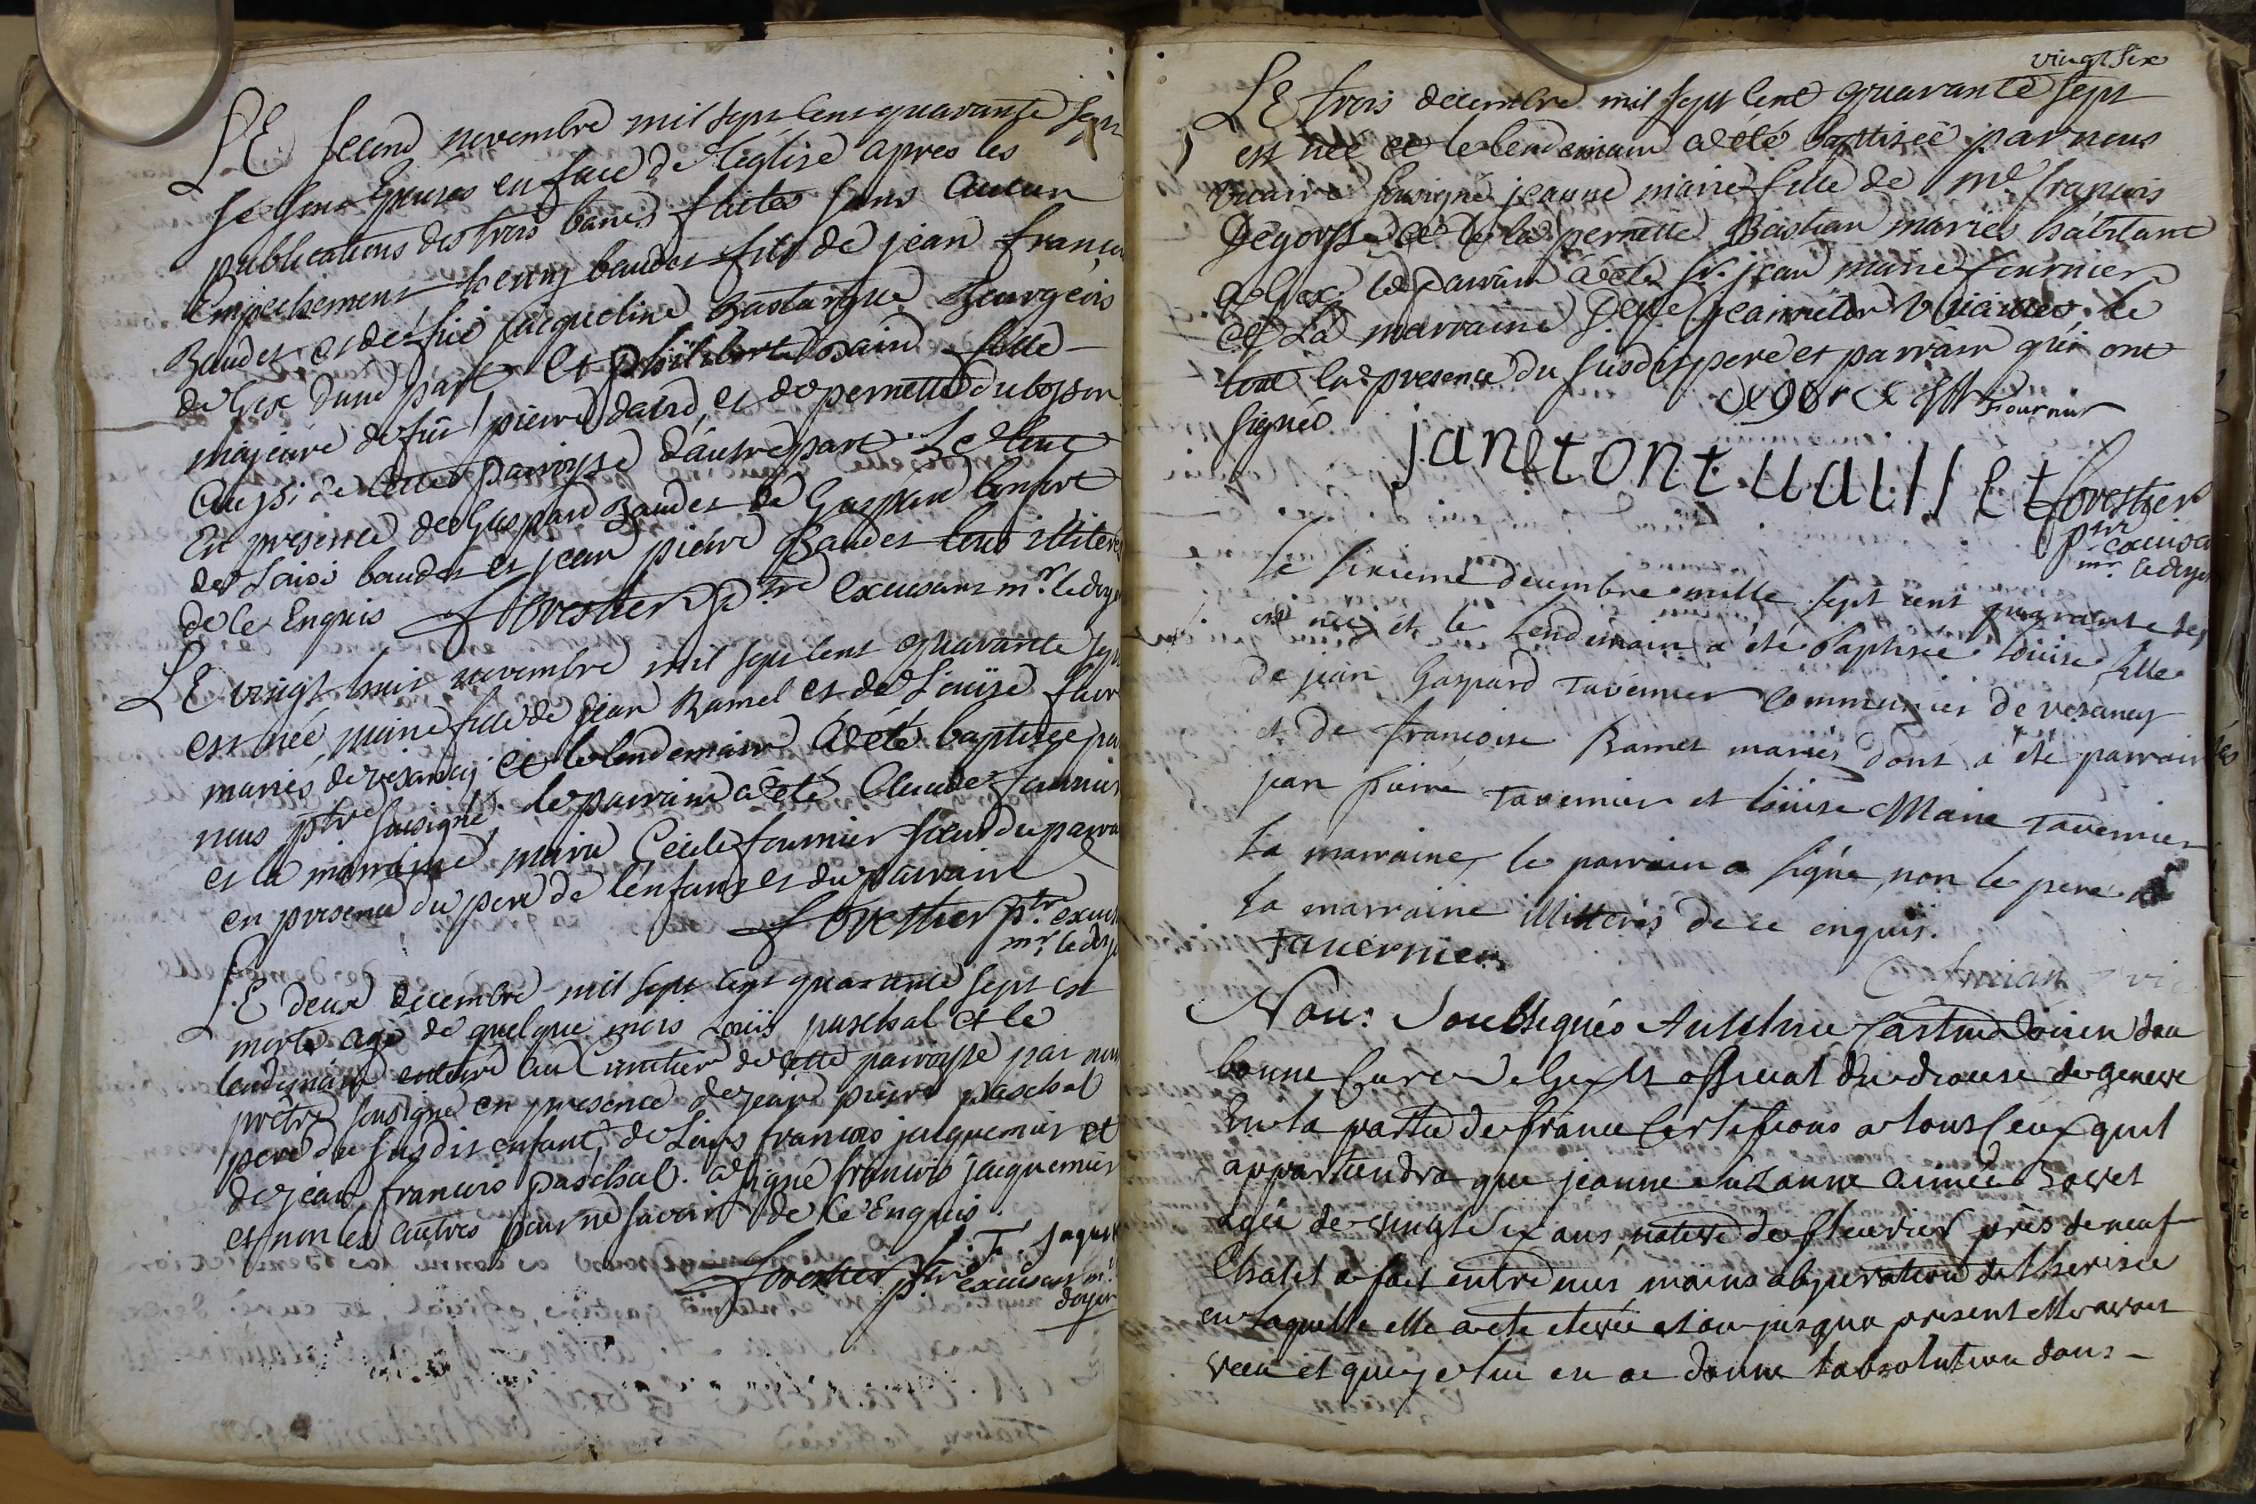 LE second novembre mil sept cent quarante sept
se sont Epousés en face de l'église apres les
publications des trois bancs faites sans aucun
Empechement baudet fils de jean françois
Baudet et de feüe jacqueline Bastargue bourgeois
de Gex d'une part et philiberte dain fille
majeure de fût pierre daird et de pernette dubosson
aussi de cette parroysse d'autre part. Le tout
En presence de Gaspard Baudet de Gaspard
de baudet et jean piérre Baudet tous illiterés
de ce Enquis Forestier ptre excusant mr. le doyen
LE vingt huit novembre mil sept cent quarante sept
est née marie fille de jean Ramel et de Loüise favre
mariés de vesancy et le lendemain a été baptisée par
nous ptre sousigné. le parrain a été Claude fournier
et la marraine marie Cecile fournier soeur du parrain
en presence du pere de l'enfant et du parrain
Forestier ptre. excusant
mr. le doyen
LE deux decembre mil sept cent quarante sept est
morte agé de quelque mois Loüis paschal et le
lendemain enterré au Cimetier de cette parroysse par nous
prêtre sousigné en presence de jean pierre paschal
pere du susdit enfant, de Louys francois jacquemier et
de jean francois paschal. a signé francois jacquemier
et non les autres pour ne savoir de ce Enquis.
F. Jaque
Forestier ptre. excusant mr.
doyen
vingt six
LE trois decembre mil sept cent quarante sept
est née et le lendemain a été baptisée par nous
vicaire sousigné jeanne marie fille de me. françois
Degorse et de la pernette Bastian mariés habitant
a Gex le parrain a été Sr. jean marie fournier
et La marraine Delle jeannette vuaillet, le
tout en presence du susdit pere et parrain qui ont
signés. degorse JM Fournier
janeton uaillet Forestier
ptre
excusant
mr. le doyen
Le sixieme decembre mille sept cent quarante sept
est née et le Lendemain a été Baptisée loüise fille
de jean Gaspard Tavernier communier de vesancy
et de françoise Ramet mariés dont a été parrain
jean pierre Tavernier et loüise Marie Tavernier
La marraine, le parrain a signé, non le pere et
La marraine illitterés de ce enquis.
Tavernier
Nous Soubsignés Antelme Castin doien de la
bonne Cure de Gex et official du diocese de geneve
En la partie de france Certifions a tous Ceux quil
appartiendra que jeanne suzanne aimée Bovet
agée de vingt six ans, native de fleurier près de neuf
Chatel a fait entre mes mains abjuration de l'heresie
en laquelle elle a ete elevée et ou jusqua present elle avoit
vecu et que je lui en ai donné l'absolution dans